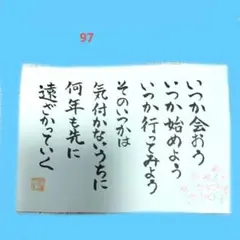 97
いつか会おう
いつか始めよう
いつか行ってみよう
そのいつかは
気付かないうちに
何年も先に
遠ざかっていく